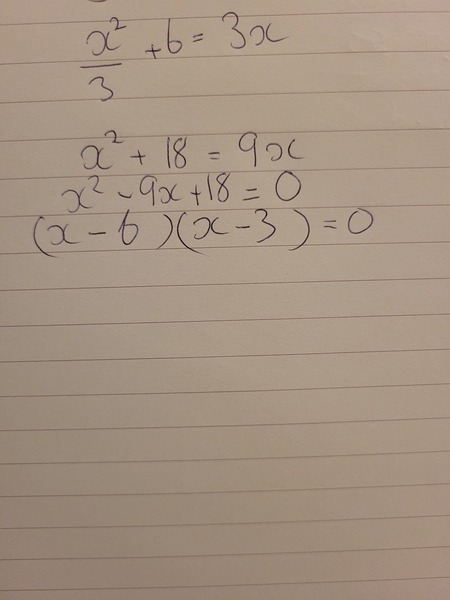 x²/3 + 6 = 3x
x² + 18 = 9x
x² - 9x + 18 = 0
(x - 6)(x - 3) = 0